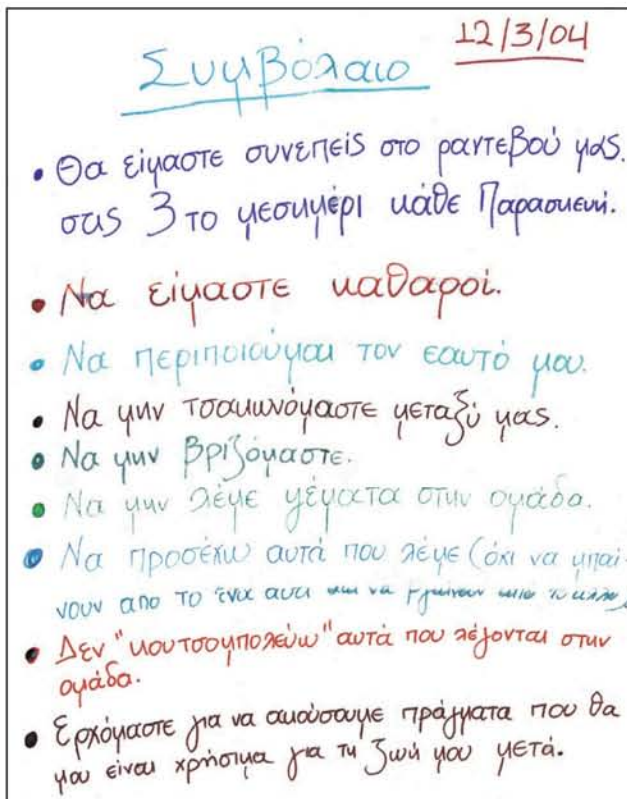 12/3/04
Συμβόλαιο
• Θα είμαστε συνεπείς στο ραντεβού μας.
στις 3 το μεσημέρι κάθε Παρασκευή.
• Να είμαστε καθαροί.
• Να περιποιούμαι τον εαυτό μου.
• Να μην τσακωνόμαστε μεταξύ μας.
• Να μην βριζόμαστε.
• Να μην λέμε ψέματα στην ομάδα.
• Να προσέχω αυτά που λέμε (όχι να μπαί-
νουν απο το ένα αυτι και να βγαίνουν απο το άλλο)
• Δεν "κουτσομπολεύω" αυτά που λέγονται στην
ομάδα.
• Ερχόμαστε για να ακούσουμε πράγματα που θα
μου είναι χρήσιμα για τη ζωή μου μετά.